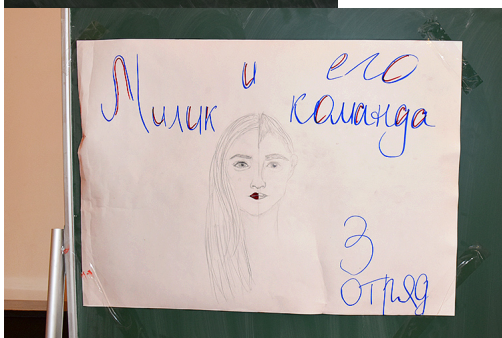 Милик и его
команда
3
отряд